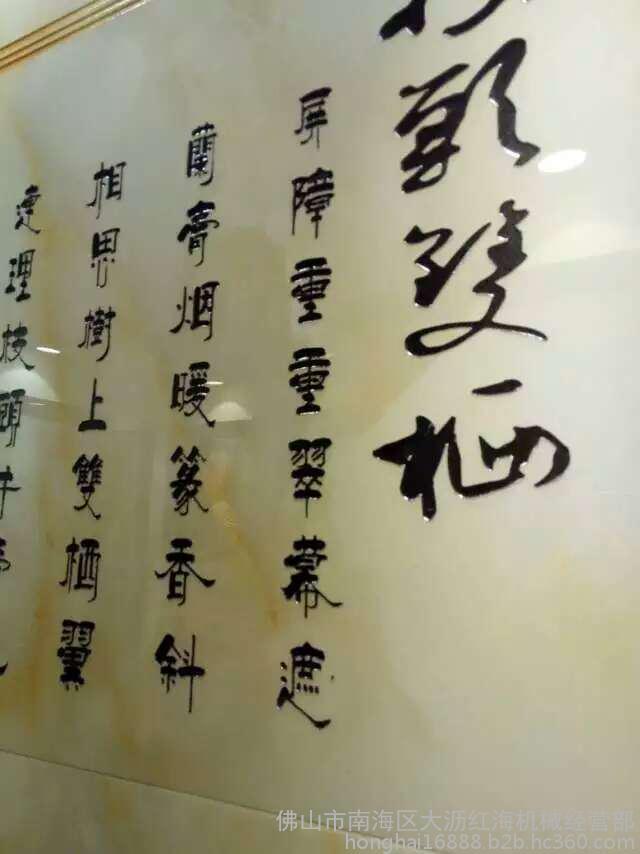 雙栖
屏障重重翠幕遮
蘭膏烟暖篆香斜
相思樹上雙栖翼
連理枝頭并
佛山市南海区大沥红海机械经营部
honghai16888.b2b.hc360.com